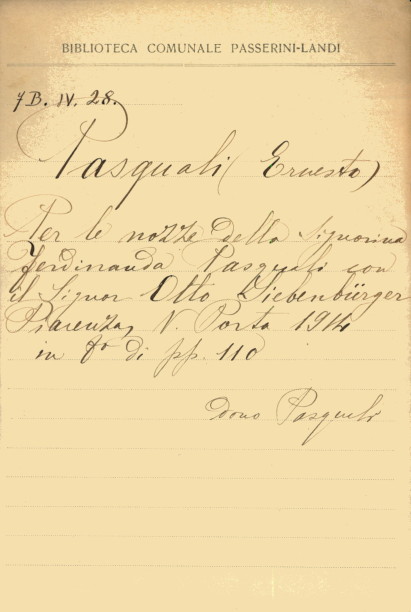 BIBLIOTECA COMUNALE PASSERINI-LANDI
7B. IV. 28.
Pasquali (Ernesto)
Per le nozze della Signorina
Ferdinanda Pasquali con
il Signor Otto Siebenbürger
Piacenza, V. Porta 1914
in 8º di pp. 110
Dono Pasquali